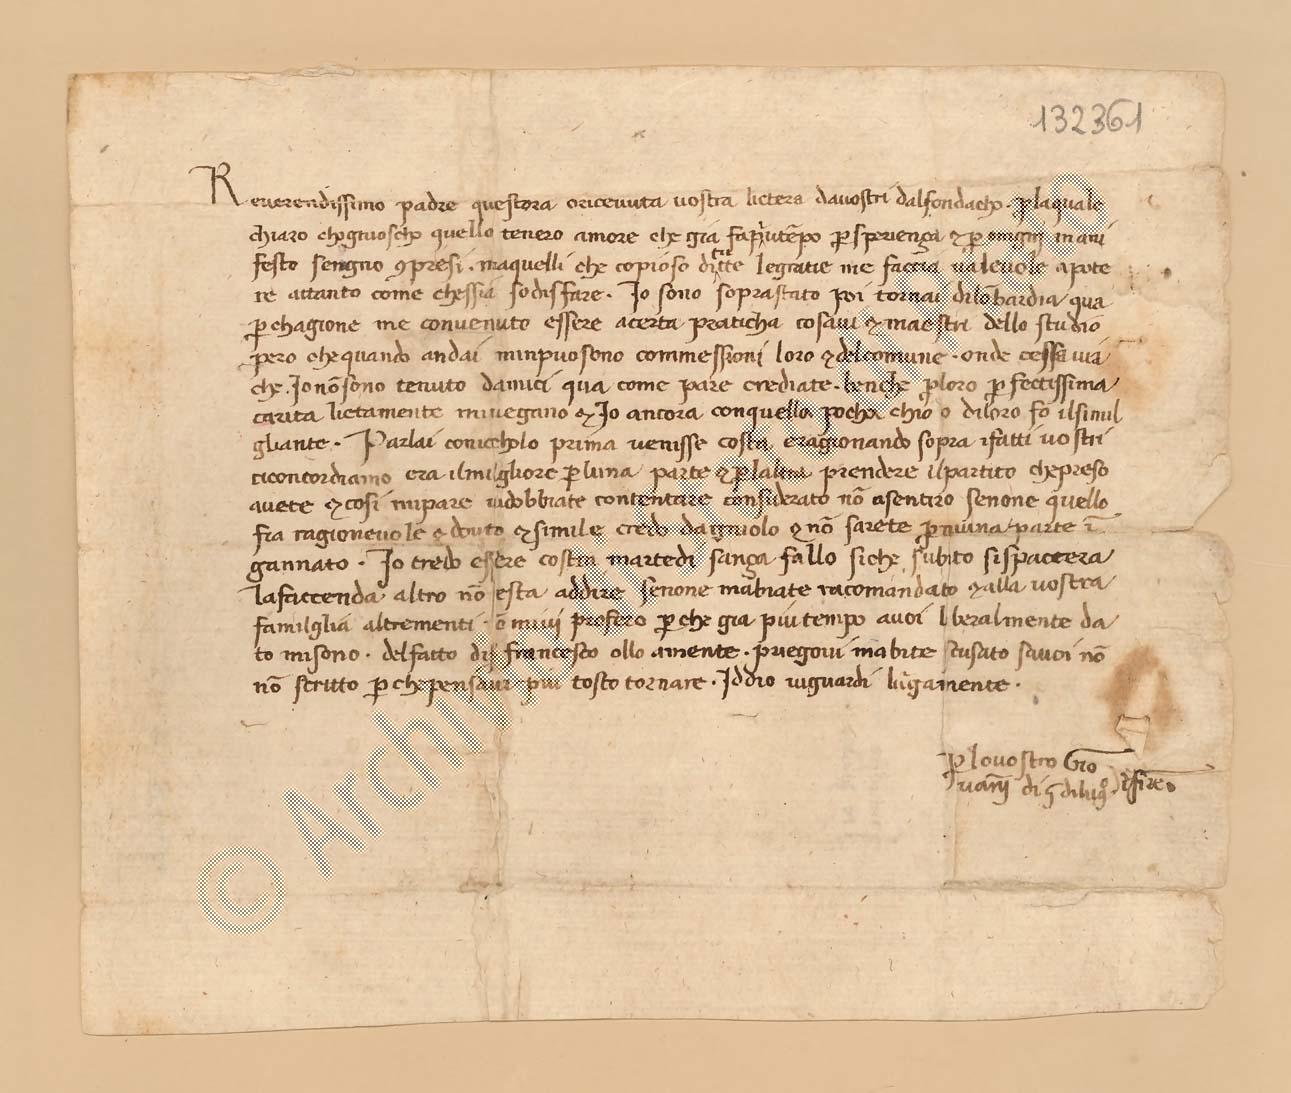 132361
Reverendissimo padre questora oricevuta vostra lictera davostri dalfondacho · p laquale
chiaro chognoscho quello tenero amore che gia fa più tēpo p sperienza & p mani
festo sengno 9presi · maquelli che copioso di tutte legratie me faccia valevole apote
re attanto come chessia sodisfare · Io sono soprastato poi tornai dilōbardia qua
p chagione me convenuto essere acerta praticha cosavi & maestri dello studio
pero che quando andai minpuosono commessioni loro & delcomune · onde cessa via
che · Io nō sono tenuto damici qua come pare crediate · benche p loro pfectissima
carita lietamente miveggano & Io ancora conquella pocha chio o diloro fo ilsimil
gliante · Parlai coniccholo prima venisse costa eragionando sopra ifatti vostri
ciconcordiamo era ilmigliore p luna parte & p laltra prendere ilpartito chepreso
avete & cosi mipare vidobbiate contentare considerato nō asentiro senone quello
fia ragionevole & dovuto & simile credo dagnuolo & nō sarete p niuna parte ī
gannato · Io credo essere costra martedi sanza fallo siche subito sispaccera
lafaccenda altro nō esta addire senone mabiate racomandato & alla vostra
familglia altrementi · ō mivi profero p che gia piu tempo avoi liberalmente da
to misono · delfatto di francesco ollo amente · priegovi mabite scusato savoi nō
nō scritto p chepensavi piu tosto tornare · Iddio viguardi lūgamente ·
p lovostro Gio
vāni di 5 dilug° · ī fire
© Archivio